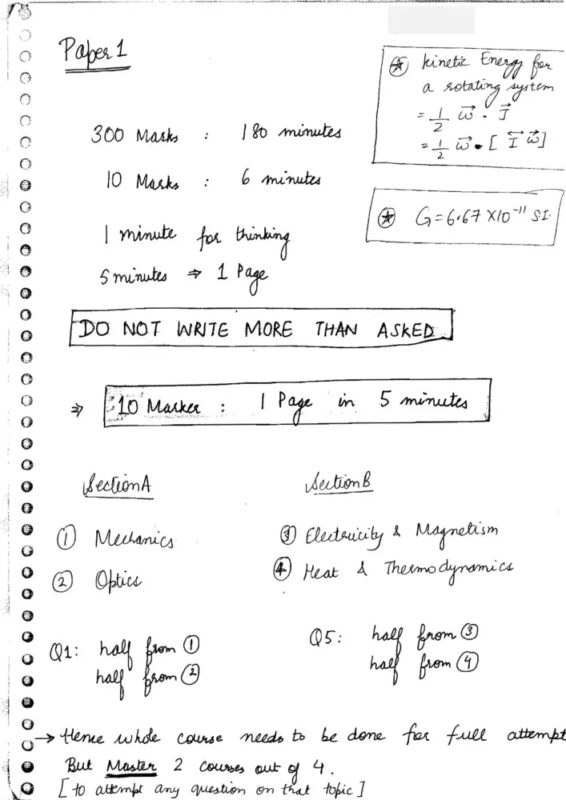 Paper 1
⊛ kinetic Energy for
a rotating system
= 1/2 ω⃗ · J⃗
= 1/2 ω⃗ · [ I⃡ ω⃗ ]
300 Marks : 180 minutes
10 Marks : 6 minutes
⊛ G = 6.67 × 10⁻¹¹ S.I.
1 minute for thinking
5 minutes ⇒ 1 Page
DO NOT WRITE MORE THAN ASKED
⇒ 10 Marker : 1 Page in 5 minutes
Section A
① Mechanics
② Optics
Section B
③ Electricity & Magnetism
④ Heat & Thermodynamics
Q1: half from ①
half from ②
Q5: half from ③
half from ④
→ Hence whole course needs to be done for full attempt
But Master 2 courses out of 4.
[ to attempt any question on that topic ]